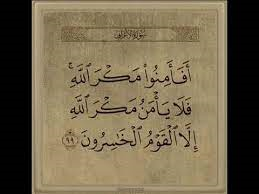 سورة الأعراف
أَفَأَمِنُوا۟ مَكْرَ ٱللَّهِ ۚ
فَلَا يَأْمَنُ مَكْرَ ٱللَّهِ
إِلَّا ٱلْقَوْمُ ٱلْخَـٰسِرُونَ ٩٩